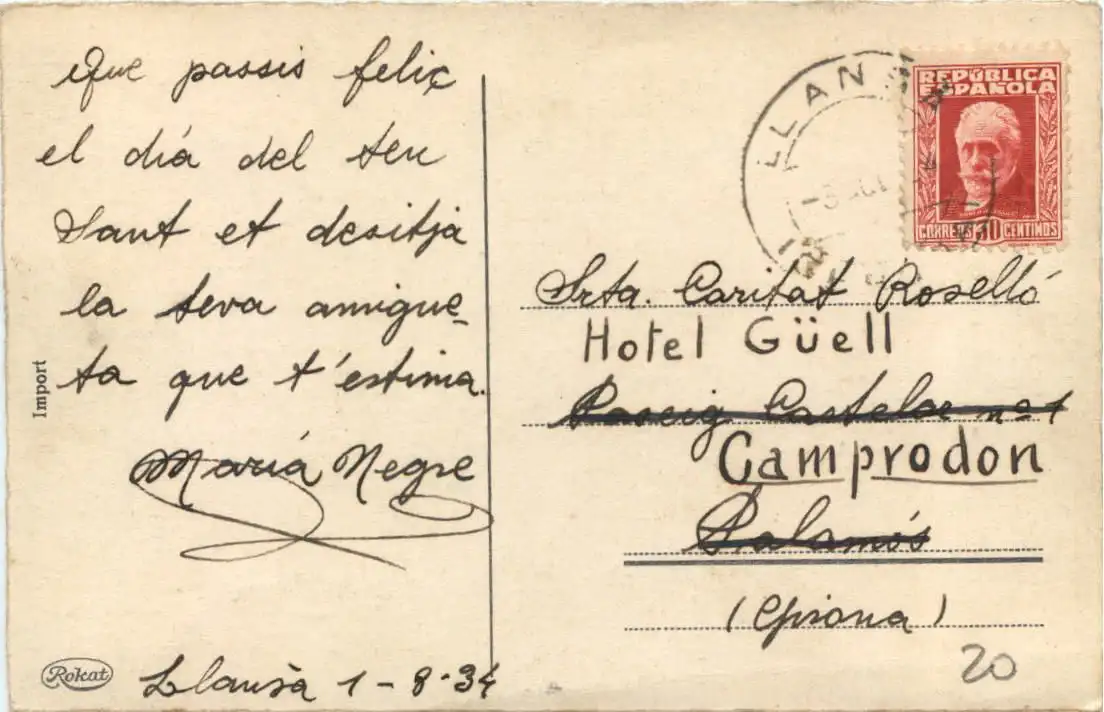 Que passis feliç
el día del teu
Sant et desitja
la teva amigue-
ta que t'estima.
Maria Negre
Llansà 1-8-34
Import
Rokat
LLANSA
REPÚBLICA
ESPAÑOLA
CORREOS 30 CENTIMOS
Srta. Caritat Roselló
Hotel Güell
Paseig Castelar nº 1
Camprodon
Palamós
(Girona)
20